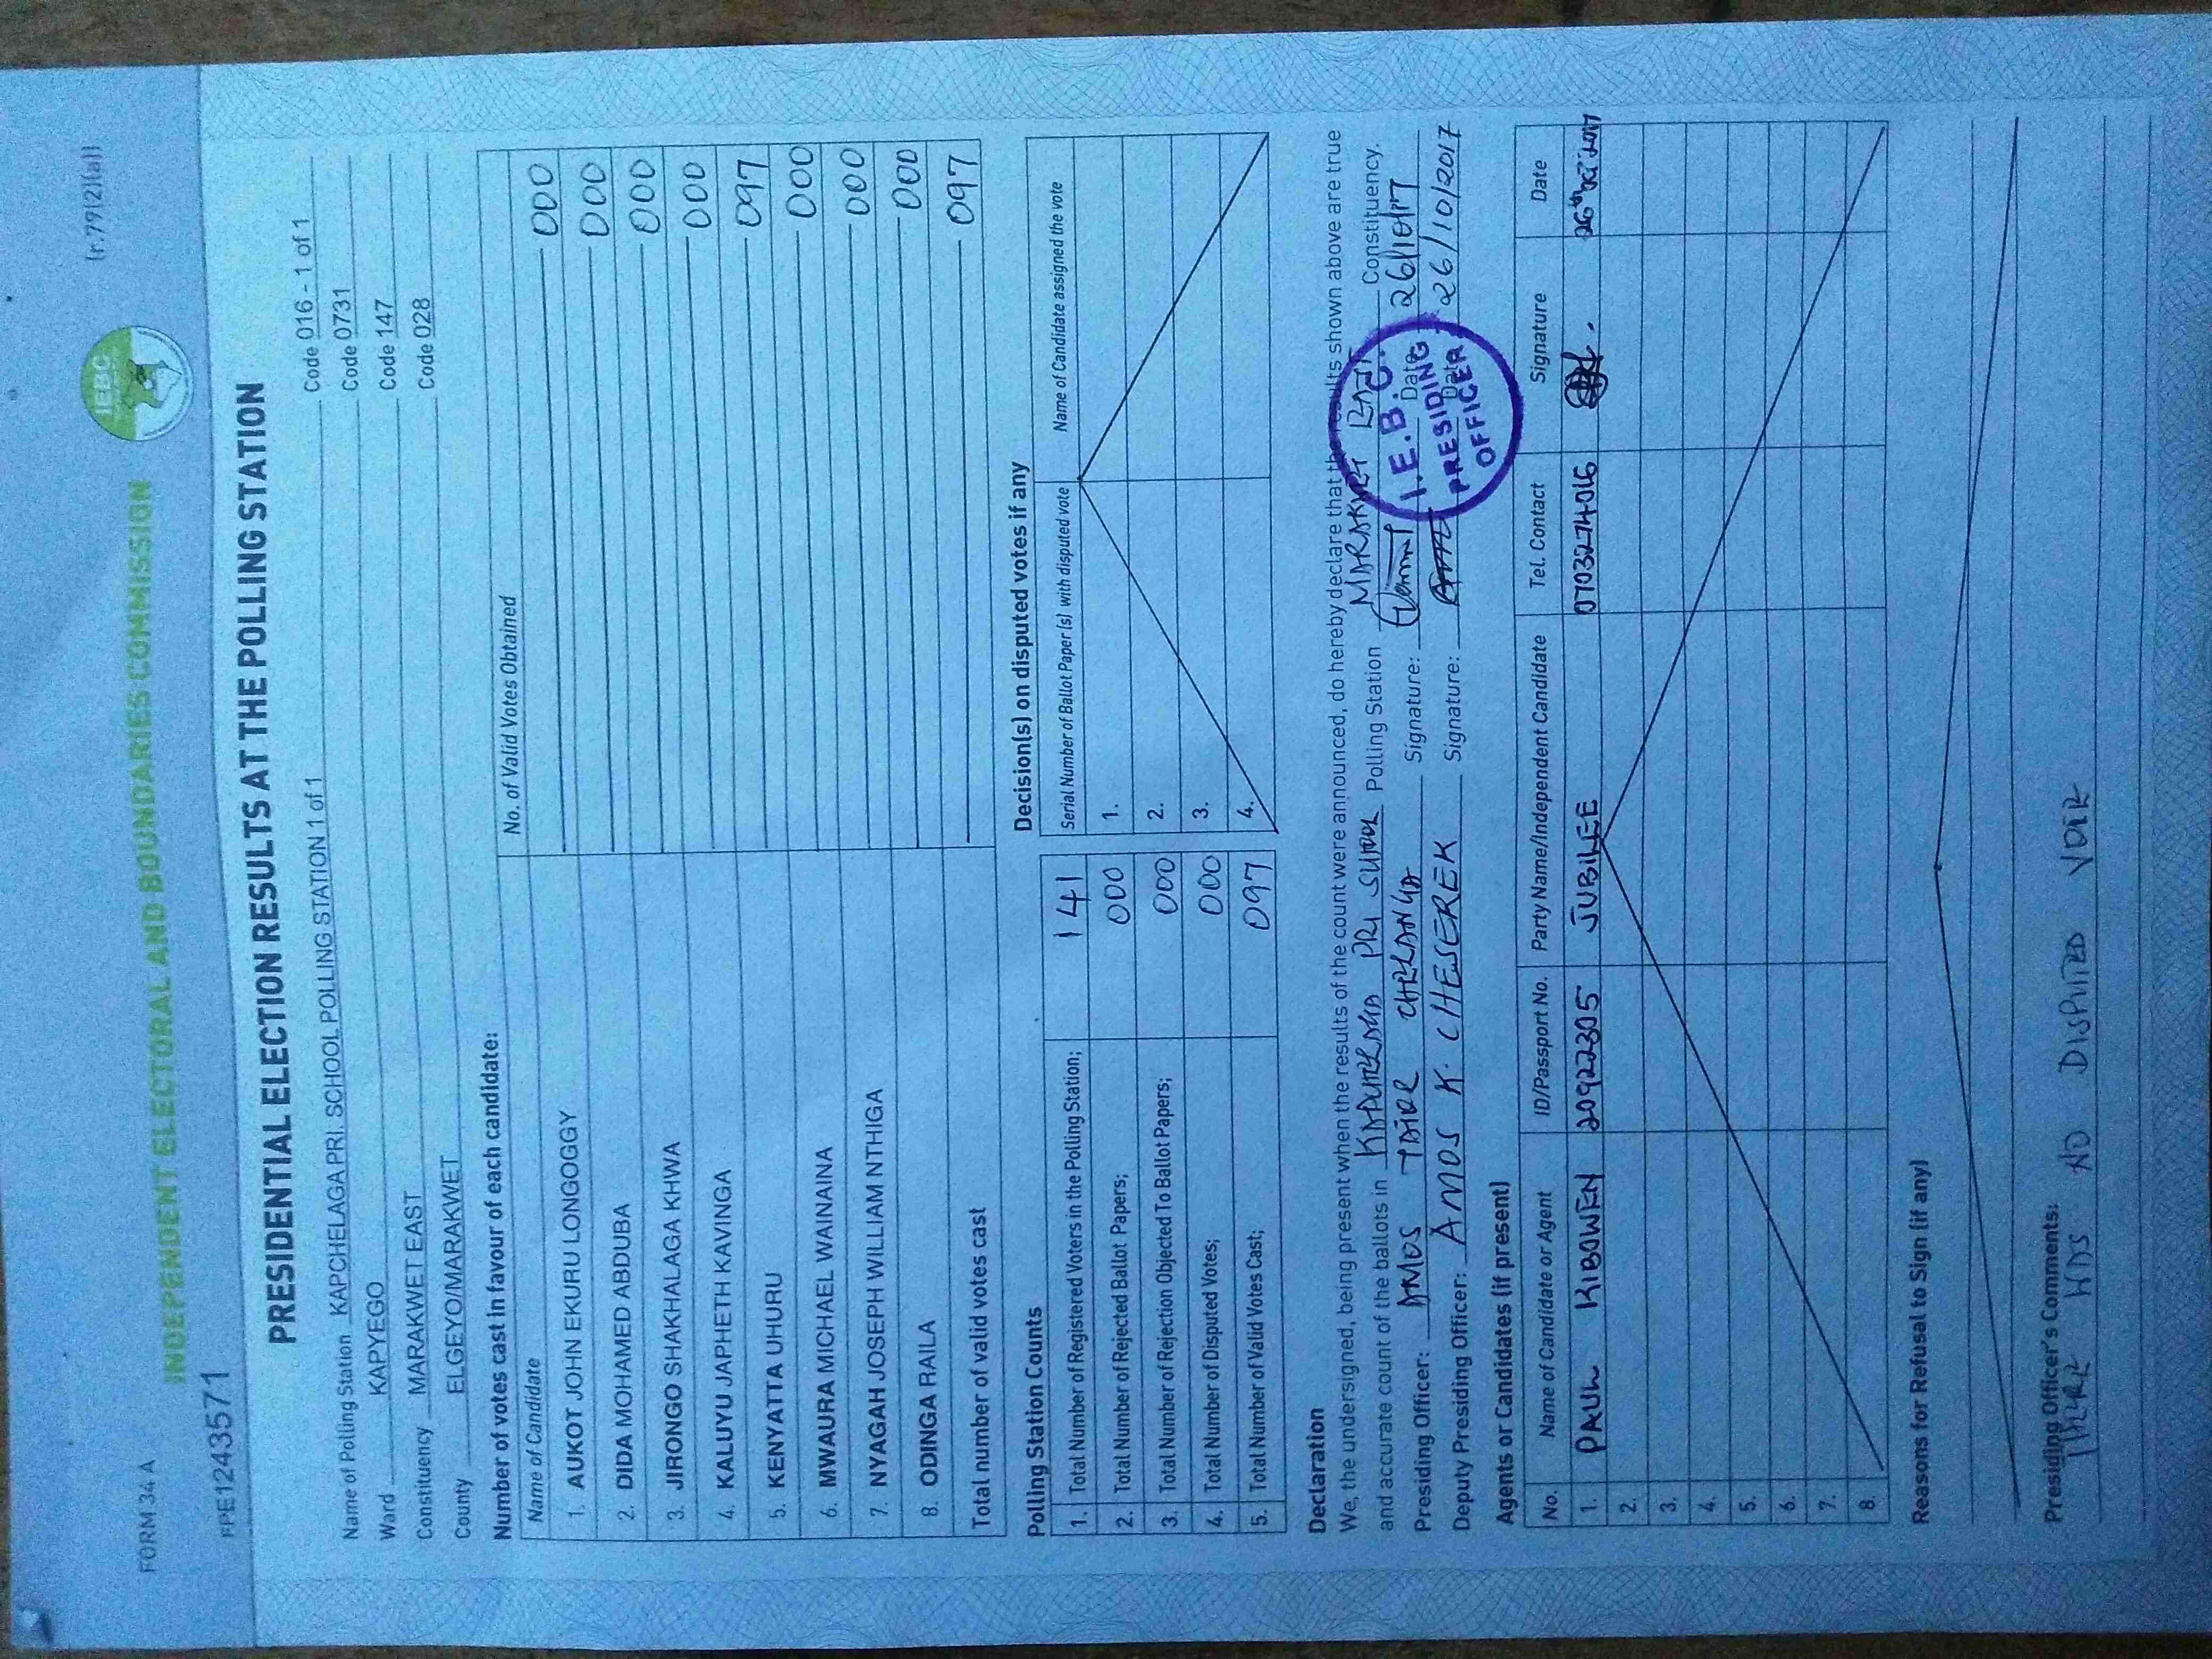 FORM 34 A
(r.79(2)(a))
IEBC
INDEPENDENT ELECTORAL AND BOUNDARIES COMMISSION
PPE1243571
PRESIDENTIAL ELECTION RESULTS AT THE POLLING STATION
Name of Polling Station KAPCHELAGA PRI. SCHOOL POLLING STATION 1 of 1 Code 016 - 1 of 1
Ward KAPYEGO Code 0731
Constituency MARAKWET EAST Code 147
County ELGEYO/MARAKWET Code 028
Number of votes cast in favour of each candidate:
Name of Candidate No. of Valid Votes Obtained
1. AUKOT JOHN EKURU LONGOGGY 000
2. DIDA MOHAMED ABDUBA 000
3. JIRONGO SHAKHALAGA KHWA 000
4. KALUYU JAPHETH KAVINGA 000
5. KENYATTA UHURU 097
6. MWAURA MICHAEL WAINAINA 000
7. NYAGAH JOSEPH WILLIAM NTHIGA 000
8. ODINGA RAILA 000
Total number of valid votes cast 097
Polling Station Counts
1. Total Number of Registered Voters in the Polling Station; 141
2. Total Number of Rejected Ballot Papers; 000
3. Total Number of Rejection Objected To Ballot Papers; 000
4. Total Number of Disputed Votes; 000
5. Total Number of Valid Votes Cast; 097
Decision(s) on disputed votes if any
Serial Number of Ballot Paper (s) with disputed vote Name of Candidate assigned the vote
1.
2.
3.
4.
Declaration
We, the undersigned, being present when the results of the count were announced, do hereby declare that the results shown above are true
and accurate count of the ballots in PRI Polling Station MARAKWET EAST Constituency.
Presiding Officer: AMOS Signature: Date: 26/10/17
Deputy Presiding Officer: AMOS K. CHESEREK Signature: Date: 26/10/2017
I.E.B.C.
PRESIDING
OFFICER
Agents or Candidates (if present)
No. Name of Candidate or Agent ID/Passport No. Party Name/Independent Candidate Tel. Contact Signature Date
1. PAUL KIBOWEN 20922305 JUBILEE 0703274016 26th Oct 2017
2.
3.
4.
5.
6.
7.
8.
Reasons for Refusal to Sign (if any)
Presiding Officer's Comments:
THERE WAS NO DISPUTED VOTE